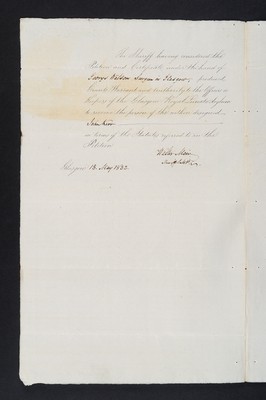 The Sheriff having considered this
Petition and Certificate under the hand of
George Watson Surgeon in Glasgow, produced,
Grants Warrant and Authority to the
Keepers of the Glasgow Royal Lunatic Asylum
to receive the person of the within designed
in terms of the Statute referred to in the
Petition.
Glasgow 18 May 1832.